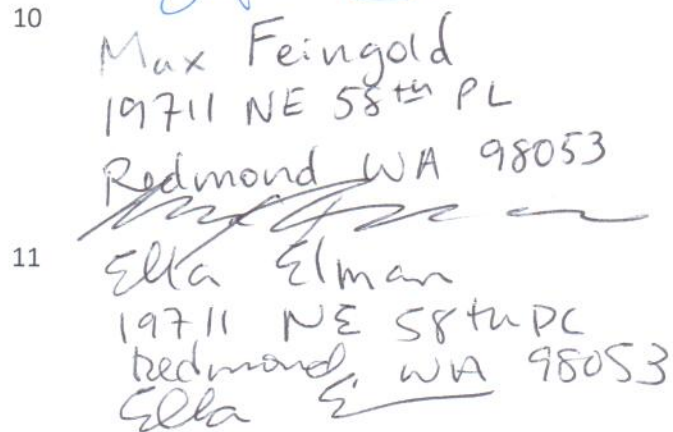 10
Max Feingold
19711 NE 58th PL
Redmond WA 98053
11
Ella Elman
19711 NE 58th PL
Redmond, WA 98053
Ella E